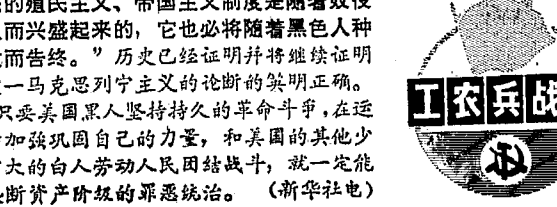 的殖民主义、帝国主义制度是随着奴役
而兴盛起来的，它也必将随着黑色人种
而告终。”历史已经证明并将继续证明
一马克思列宁主义的论断的英明正确。
只要美国黑人坚持持久的革命斗争，在运
加强巩固自己的力量，和美国的其他少
大的白人劳动人民团结战斗，就一定能
断资产阶级的罪恶统治。（新华社电）
工农兵战